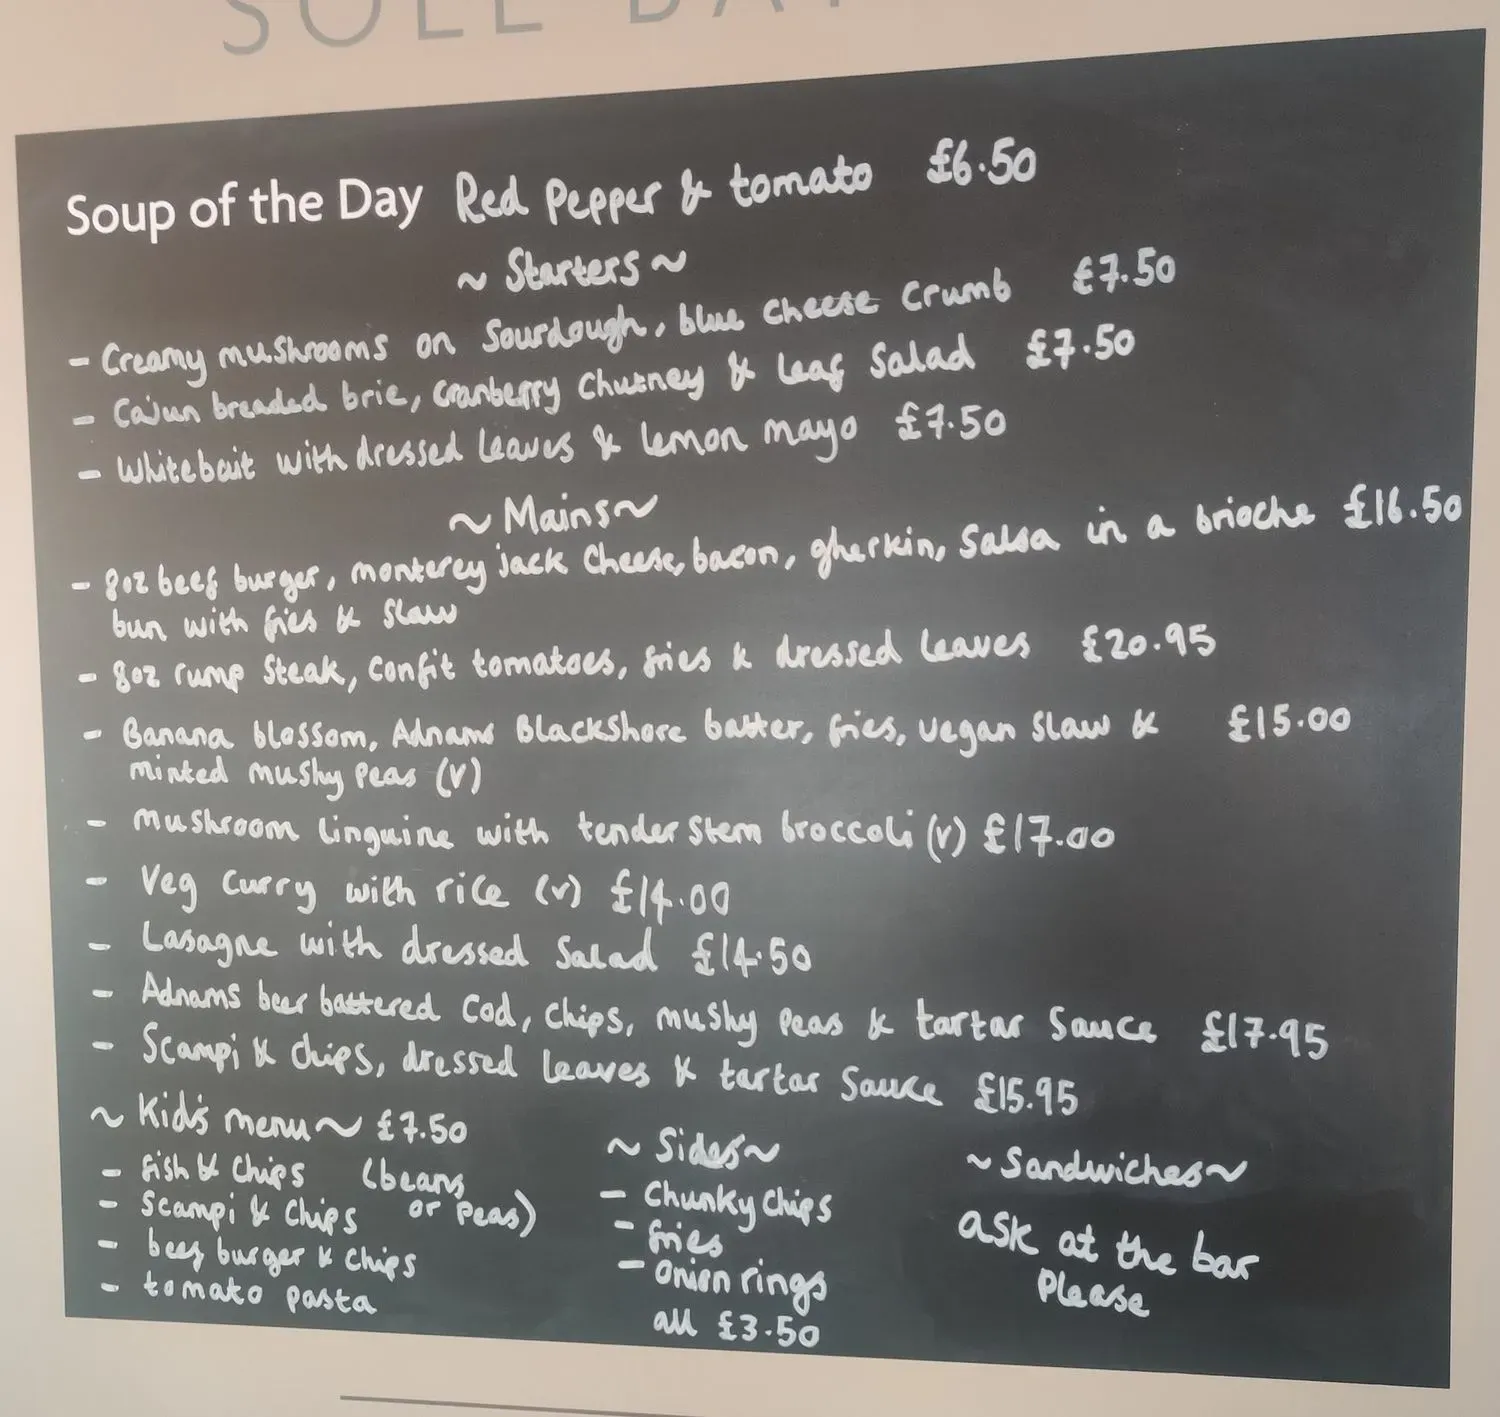 Soup of the Day Red Pepper & tomato £6.50
~ Starters ~
- Creamy mushrooms on Sourdough, blue cheese crumb £7.50
- Cajun breaded brie, cranberry chutney & leaf salad £7.50
- Whitebait with dressed leaves & lemon mayo £7.50
~ Mains ~
- 8oz beef burger, monterey jack cheese, bacon, gherkin, salsa in a brioche £16.50
bun with fries & slaw
- 8oz rump steak, confit tomatoes, fries & dressed leaves £20.95
- Banana blossom, Adnams Blackshore batter, fries, vegan slaw & £15.00
minted mushy peas (v)
- mushroom linguine with tender stem broccoli (v) £17.00
- Veg curry with rice (v) £14.00
- Lasagne with dressed salad £14.50
- Adnams beer battered cod, chips, mushy peas & tartar sauce £17.95
- Scampi & chips, dressed leaves & tartar sauce £15.95
~ Kid's menu ~ £7.50
- fish & chips (beans
- Scampi & chips or peas)
- beef burger & chips
- tomato pasta
~ Sides ~
- Chunky chips
- fries
- onion rings
all £3.50
~ Sandwiches ~
ask at the bar
please